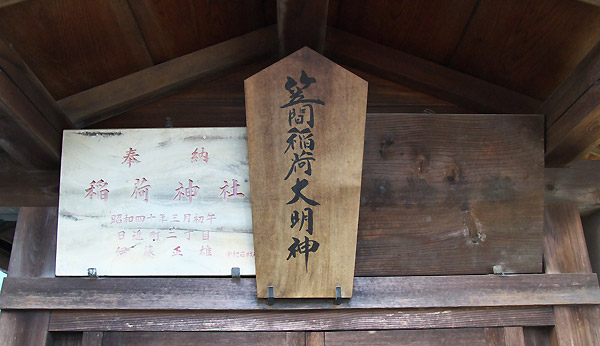 笠間稲荷大明神
奉納
稲荷神社
昭和四十年三月初午
日近町三丁目